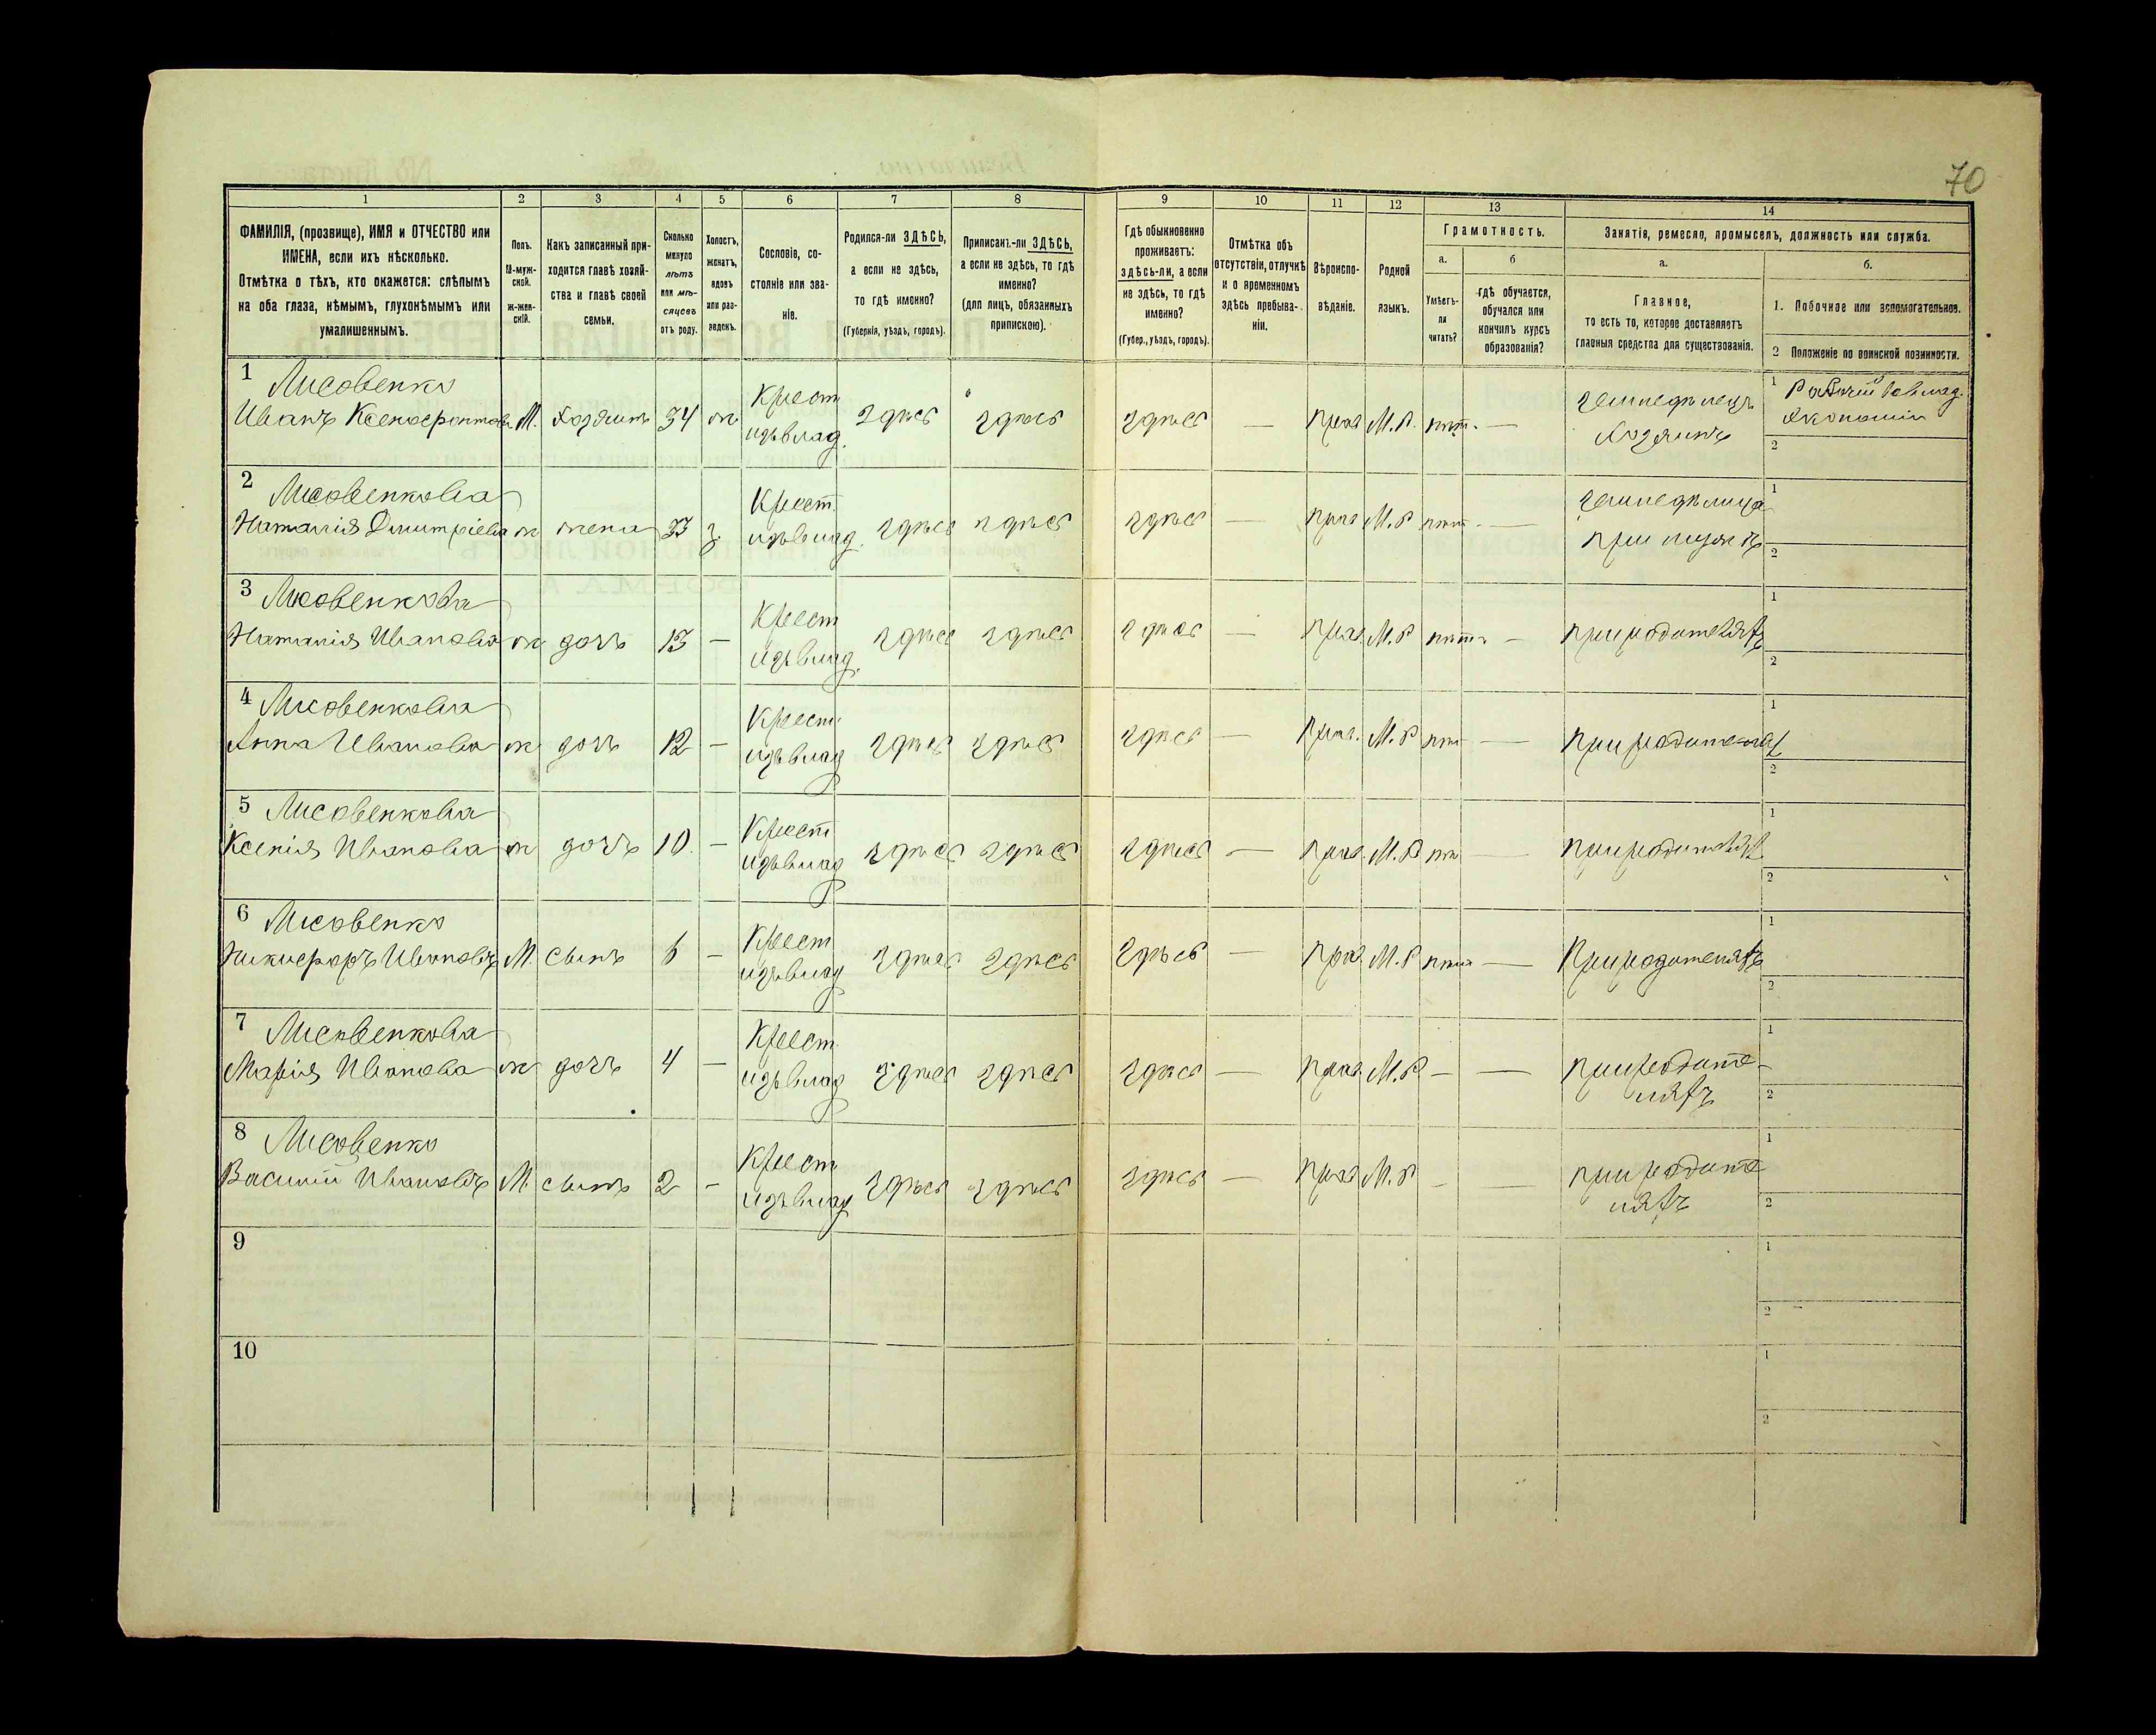 70
1 2 3 4 5 6 7 8 9 10 11 12 13 14
ФАМИЛІЯ, (прозвище), ИМЯ и ОТЧЕСТВО или
ИМЕНА, если ихъ нѣсколько.
Отмѣтка о тѣхъ, кто окажется: слѣпымъ
на оба глаза, нѣмымъ, глухонѣмымъ или
умалишеннымъ.
Полъ.
М-муж-
ской.
ж-жен-
скій.
Какъ записанный при-
ходится главѣ хозяй-
ства и главѣ своей
семьи.
Сколько
минуло
лѣтъ
или мѣ-
сяцевъ
отъ роду.
Холостъ,
женатъ,
вдовъ
или раз-
веденъ.
Сословіе, со-
стояніе или зва-
ніе.
Родился-ли ЗДѢСЬ,
а если не здѣсь,
то гдѣ именно?
(Губернія, уѣздъ, городъ).
Приписанъ-ли ЗДѢСЬ,
а если не здѣсь, то гдѣ
именно?
(для лицъ, обязанныхъ
припискою).
Гдѣ обыкновенно
проживаетъ:
здѣсь-ли, а если
не здѣсь, то гдѣ
именно?
(Губер., уѣздъ, городъ).
Отмѣтка объ
отсутствіи, отлучкѣ
и о временномъ
здѣсь пребыва-
ніи.
Вѣроиспо-
вѣданіе.
Родной
языкъ.
Грамотность.
а.
Умѣетъ-
ли
читать?
б
гдѣ обучается,
обучался или
кончилъ курсъ
образованія?
Занятія, ремесло, промыселъ, должность или служба.
а.
Главное,
то есть то, которое доставляетъ
главныя средства для существованія.
б.
1. Побочное или вспомогательное.
2 Положеніе по воинской повинности.
1 Лисовенко Крест. земледѣлецъ 1 Рабочій
Иванъ Ксенофонтовъ М. Хозяинъ 34 ж. здѣсь здѣсь здѣсь — прав. М. Р. нѣт. — Хозяинъ экономіи
2
2 Лисовенкова Крест. земледѣлица 1
Наталія Дмитріева ж жена 33 з. здѣсь здѣсь здѣсь — прав М. Р нѣт. — при мужѣ 2
3 Лисовенкова Крест 1
Наталія Иванова ж дочь 13 — здѣсь здѣсь здѣсь — прав. М. Р нѣтъ — при родителяхъ
2
4 Лисовенкова Крест. 1
Анна Иванова ж дочь 12 — здѣсь здѣсь здѣсь — прав. М. Р нѣт — при родителях
2
5 Лисовенкова Крест 1
Ксенія Иванова ж дочь 10. — здѣсь здѣсь здѣсь — прав. М. Р нѣт — при родителях
2
6 Лисовенко Крест 1
Никифоръ Ивановъ М. сынъ 6 — здѣсь здѣсь здѣсь — прав М. Р нѣтъ — При родителяхъ
2
7 Лисовенкова Крест. 1
Марія Иванова ж дочь 4 — здѣсь здѣсь здѣсь — прав. М. Р — — при родите-
ляхъ 2
8 Лисовенко Крест 1
Василій Ивановъ М. сынъ 2 — здѣсь здѣсь здѣсь — прав М. Р — — при родите
ляхъ 2
9 1
2 —
10 1
2